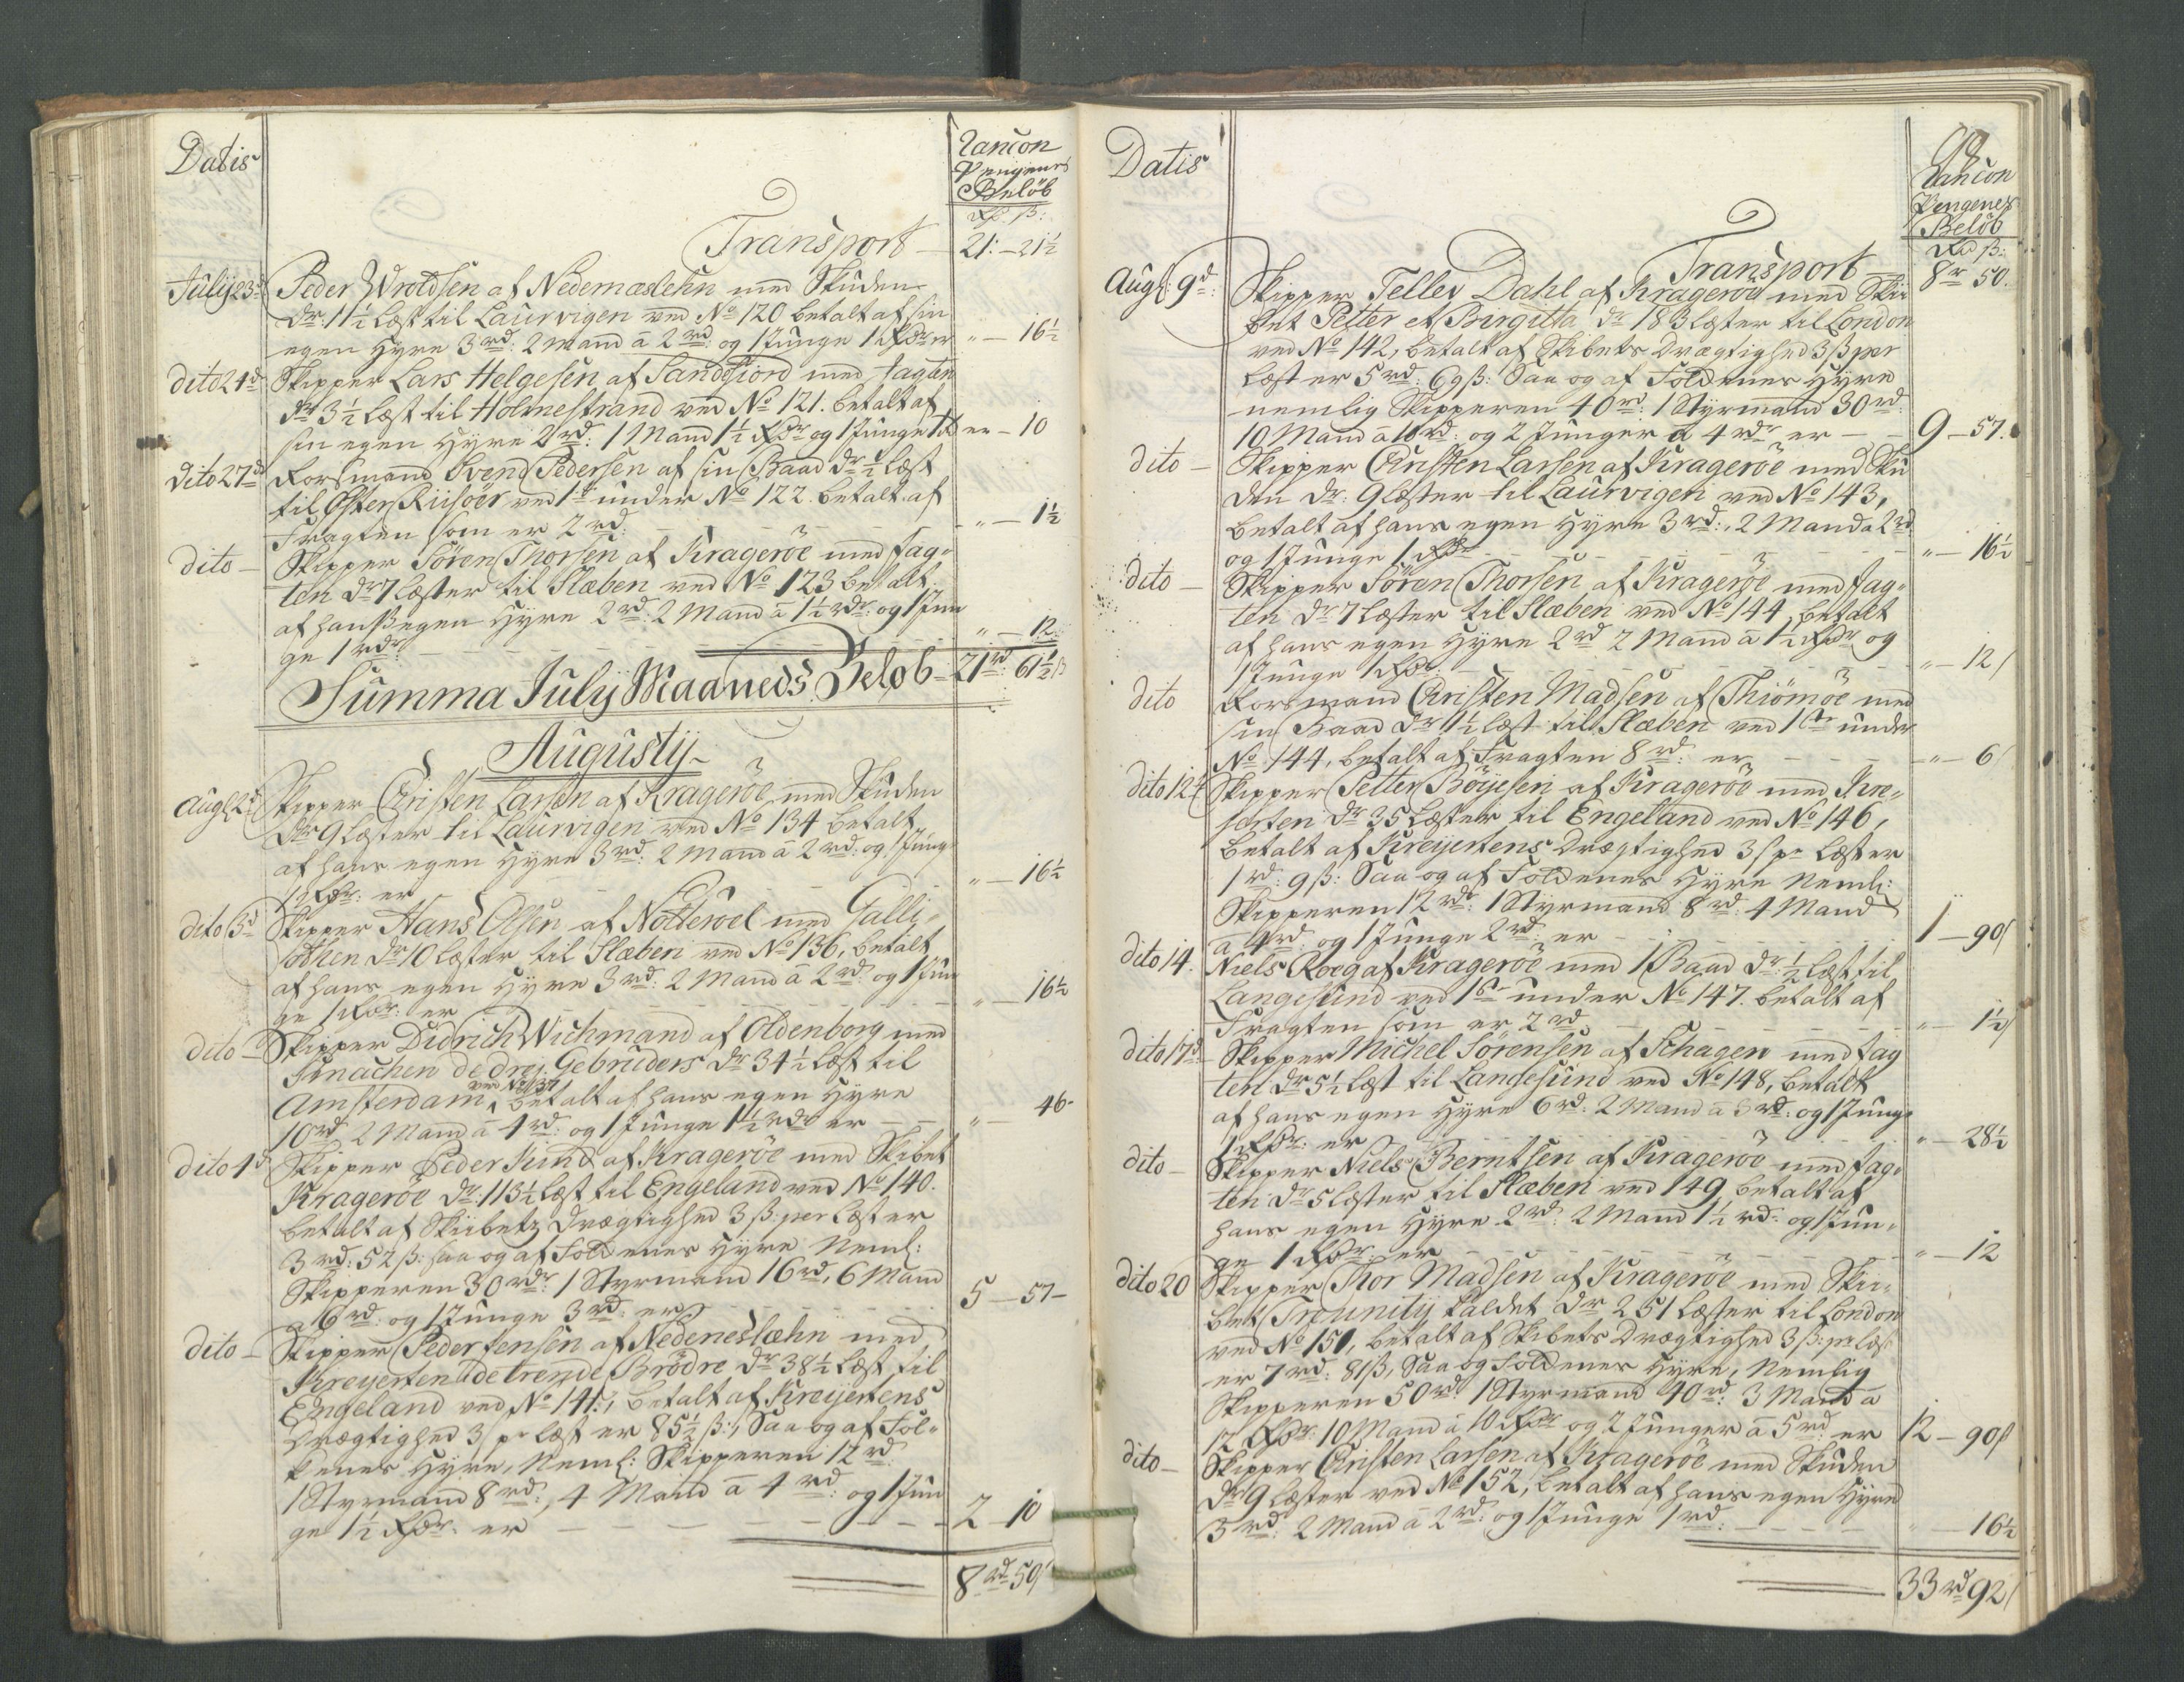 Datis
Rancon
Pengenes
Beløb
Rd ß:
Transport — 21: — 21½
July 23d Peder Wroldsen af Nedenæslehn med Skuden
dr. 11½ Læst til Laurvigen ved No 120 betalt af sin
egen Hyre 3rd: 2 Mand â 2rd: og 1 Junge 1 Rdr er „ — 16½
dito 24d Skipper Lars Helgesen af Sandefiord med Jagten
dr 3½ Læst til Holmestrand ved No 121. betalt af
sin egen Hyre 2rd: 1 Mand 1½ Rdr og 1 Junge 1rd er — 10
dito 27d Rorsmand Svend Pedersen af sin Baad dr ½ Læst
til Øster Riisöer ved 1ste under No 122 betalt af
Fragten som er 2rd: „ — 1½
dito — Skipper Sören Thorsen af Krageröe med Jag-
ten dr 7 Læster til Slæben ved No 123 betalt
af hanß egen Hyre 2rd: 2 Mand â 1½ rdr: og 1 Jun
ge 1 rdr: „ — 12
Summa July Maaneds Beløb — 21rd: 61½ ß
Augustij
Aug: 2d Skipper Christen Larsen af Krageröe med Skuden
dr 9 Læster til Laurvigen ved No 134 betalt
af hans egen Hyre 3rd: 2 Mand â 2rd: og 1 Jung
1 Rdr: er „ — 16½
dito 3d Skipper Hans Olsen af Nötteroel med Galli-
othen dr 10 Læster til Slæben ved No 136, betalt
af hans egen Hyre 3rd: 2 Mand â 2rd: og 1 Jun
ge 1 Rdr: er „ — 16½
dito — Skipper Didrich Wichmand af Oldenborg med
Smachen de drej Gebrüders dr 34½ Læst til
Amsterdam ved No 137 betalt af hans egen Hyre
10rd 2 Mand â 4rd: og 1 Junge 1½ rdr er „ — 46-
dito 4d Skipper Peder Lund af Krageröe med Skibet
Krageröe dr: 113½ Læst til Engeland ved No 140.
betalt af Skiibetz Drægtighed 3 ß: per Læst er
3rd: 52 ß: saa og af Folkenes Hyre Neml:
Skipperen 30 rdr: 1 Styrmand 16rd, 6 Mand
a 6rd: og 1 Junge 3rd: er 5 — 57 —
dito — Skipper Peder Jensen af Nedeneslæhn med
Kreyerten de trende Brödre dr 38½ Læst til
Engeland ved No 141:, betalt af Kreyertens
Drægtighed 3/ pr Læst er 85½ ß:, Saa og af Fol-
kenes Hyre, Neml: Skipperen 12rd
1 Styrmand 8rd:, 4 Mand â 4rd: og 1 Jun
ge 1½ Rdr: er — 2 — 10
8rd 50/
Datis
Rancon
Pengenes
Beløb
Rd ß:
Transport — 8r 50.
Aug: 9d: Skipper Tellev Dahl af Krageröe med Skii
bet Petter et Birgitta dr 183 Læster til London
ved No 142, betalt af Skibets Drægtighed 3 ß per
Læst er 5rd: 69 ß: Saa og af Folkenes Hyre
nemlig Skipperen 40rd: 1 Styrmand 30rd:
10 Mand â 10rd: og 2 Junger â 4rdr er — 9 — 57.
dito — Skipper Christen Larsen af Krageröe med Sku
den dr: 9 Læster til Laurvigen ved No 143,
betalt af hans egen Hyre 3rd:, 2 Mand a 2rd
og 1 Junge 1 Rdr „ — 16½
dito — Skipper Sören Thorsen af Krageröe med Jag-
ten dr 7 Læster til Slæben ved No 144, betalt
af hans egen Hyre 2rd 2 Mand â 1½ Rdr og
1 Junge 1 Rdr. „ — 12/
dito Rorsmand Christen Madsen af Thiömöe med
sin Baad dr 1½ Læst til Slæben ved 1ste under
No 144, betalt af Fragten 8rd: er — „ — 6/
dito 12d Skipper Petter Böyesen af Krageröe med Kre-
jerten dr 35 Læster til Engeland ved No 146,
betalt af Kreyertens Drægtighed 3/ pr Læst er
1rd: 9 ß: Saa og af Folkenes Hyre Neml:
Skipperen 12 rdr: 1 Styrmand 8rd: 4 Mand
â 4rd: og 1 Junge 2rd: er 1 — 90/
dito 14. Niels Roeg af Krageröe med 1 Baad dr: ½ Læst til
Langesund ved 1ste under No 147. betalt af
Fragten som er 2rd „ — 1½/
dito 17d Skipper Michel Sörensen af Schagen med Jag
ten dr 5½ Læst til Langesund ved No 148, betalt
af hans egen Hyre 6rd: 2 Mand â 3rd: og 1 Junge
1 Rdr: er „ — 28½
dito — Skipper Niels Berntsen af Krageröe med Jag-
ten dr 5 Læster til Slæben ved 149 betalt af
hans egen Hyre 2rd: 2 Mand 1½ rd: og 1 Jun-
ge 1 Rdr: er „ — 12
dito 20 Skipper Thor Madsen af Krageröe med Skii-
bet Treunity kaldet dr 251 Læster til London
ved No 151, betalt af Skibets Drægtighed 3 ß: pr Læst
er 7rd: 81 ß, Saa og Folkenes Hyre, Nemlig
Skipperen 50rd 1 Styrmand 40rd: 3 Mand a
17 Rdr: 10 Mand â 10 Rdr og 2 Junger â 5rd: er 12 — 90/
dito — Skipper Christen Larsen af Krageröe med Skuden
dr 9 Læster ved No 152, betalt af hans egen Hyre
3rd: 2 Mand â 2rd: og 1 Junge 1rd: — 16½
33rd 92/